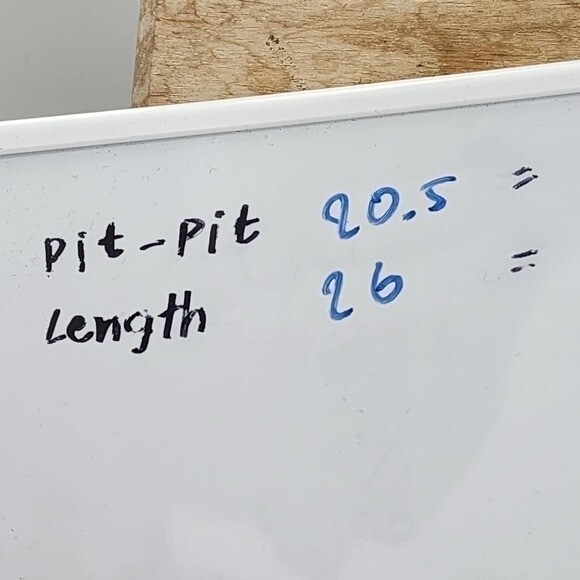 Pit-Pit 20.5 "
Length 26 "